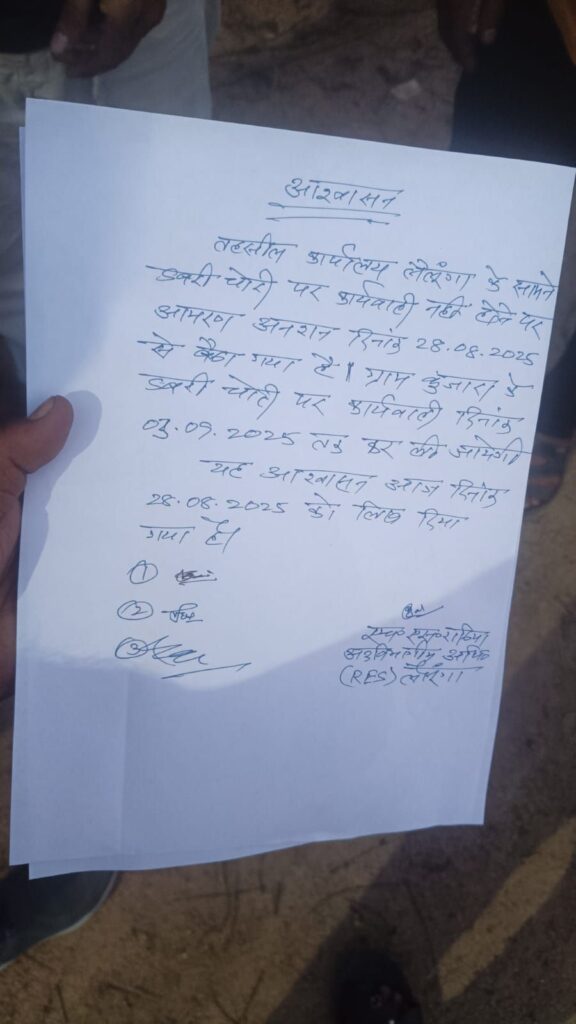 आश्वासन
तहसील कार्यालय लैलूंगा के सामने
डबरी चोरी पर कार्यवाही नहीं होने पर
आमरण अनशन दिनांक 28.08.2025
से बैठा गया है। ग्राम कुंजारा के
डबरी चोरी पर कार्यवाही दिनांक
03.09.2025 तक कर ली जायेगी
यह आश्वासन आज दिनांक
28.08.2025 को लिख दिया
गया है।
①
②
③
अनुविभागीय
(RES) लैलूंगा